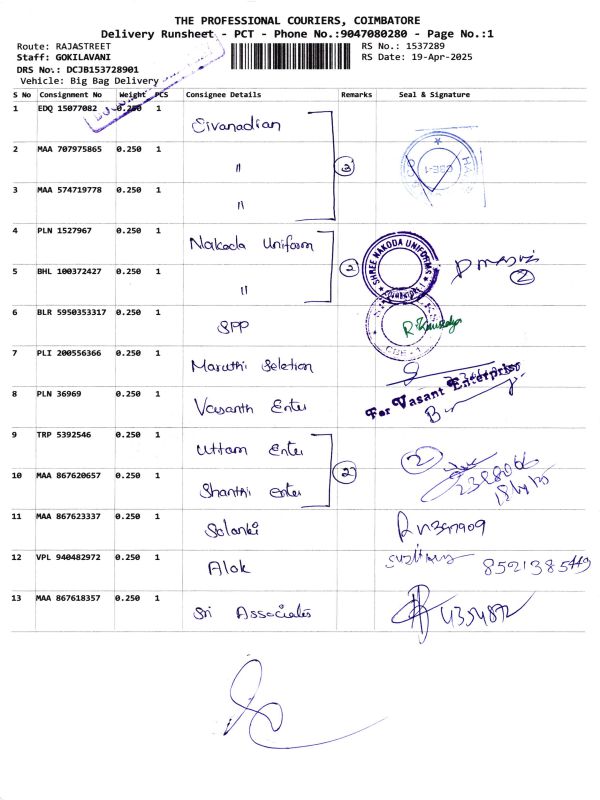 THE PROFESSIONAL COURIERS, COIMBATORE
Delivery Runsheet - PCT - Phone No.:9047080280 - Page No.:1
Route: RAJASTREET RS No.: 1537289
Staff: GOKILAVANI RS Date: 19-Apr-2025
DRS No.: DCJB153728901
Vehicle: Big Bag Delivery
S No Consignment No Weight PCS Consignee Details Remarks Seal & Signature
1 EDQ 15077082 0.250 1 Eivanadian
2 MAA 707975865 0.250 1 " 3
3 MAA 574719778 0.250 1 "
4 PLN 1527967 0.250 1 Nakoda Uniform SHREE NAKODA UNIFORMS
5 BHL 100372427 0.250 1 " 2 2
6 BLR 5950353317 0.250 1 SPP CBE - 1
7 PLI 200556366 0.250 1 Maruthi Seletion
8 PLN 36969 0.250 1 Vasanth Enter For Vasant Enterprise
9 TRP 5392546 0.250 1 Uttam Enter 2
10 MAA 867620657 0.250 1 Shanthi enter 2
11 MAA 867623337 0.250 1 Solanki
12 VPL 940482972 0.250 1 Alok
13 MAA 867618357 0.250 1 Sri Associates 4354872